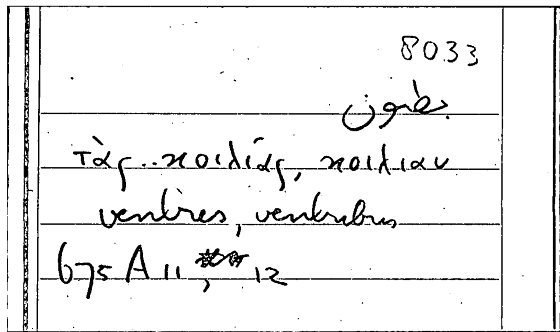 8033
بطون
τὰς..κοιλίας, κοιλιαν
ventres, ventribus
675 A 11, 12